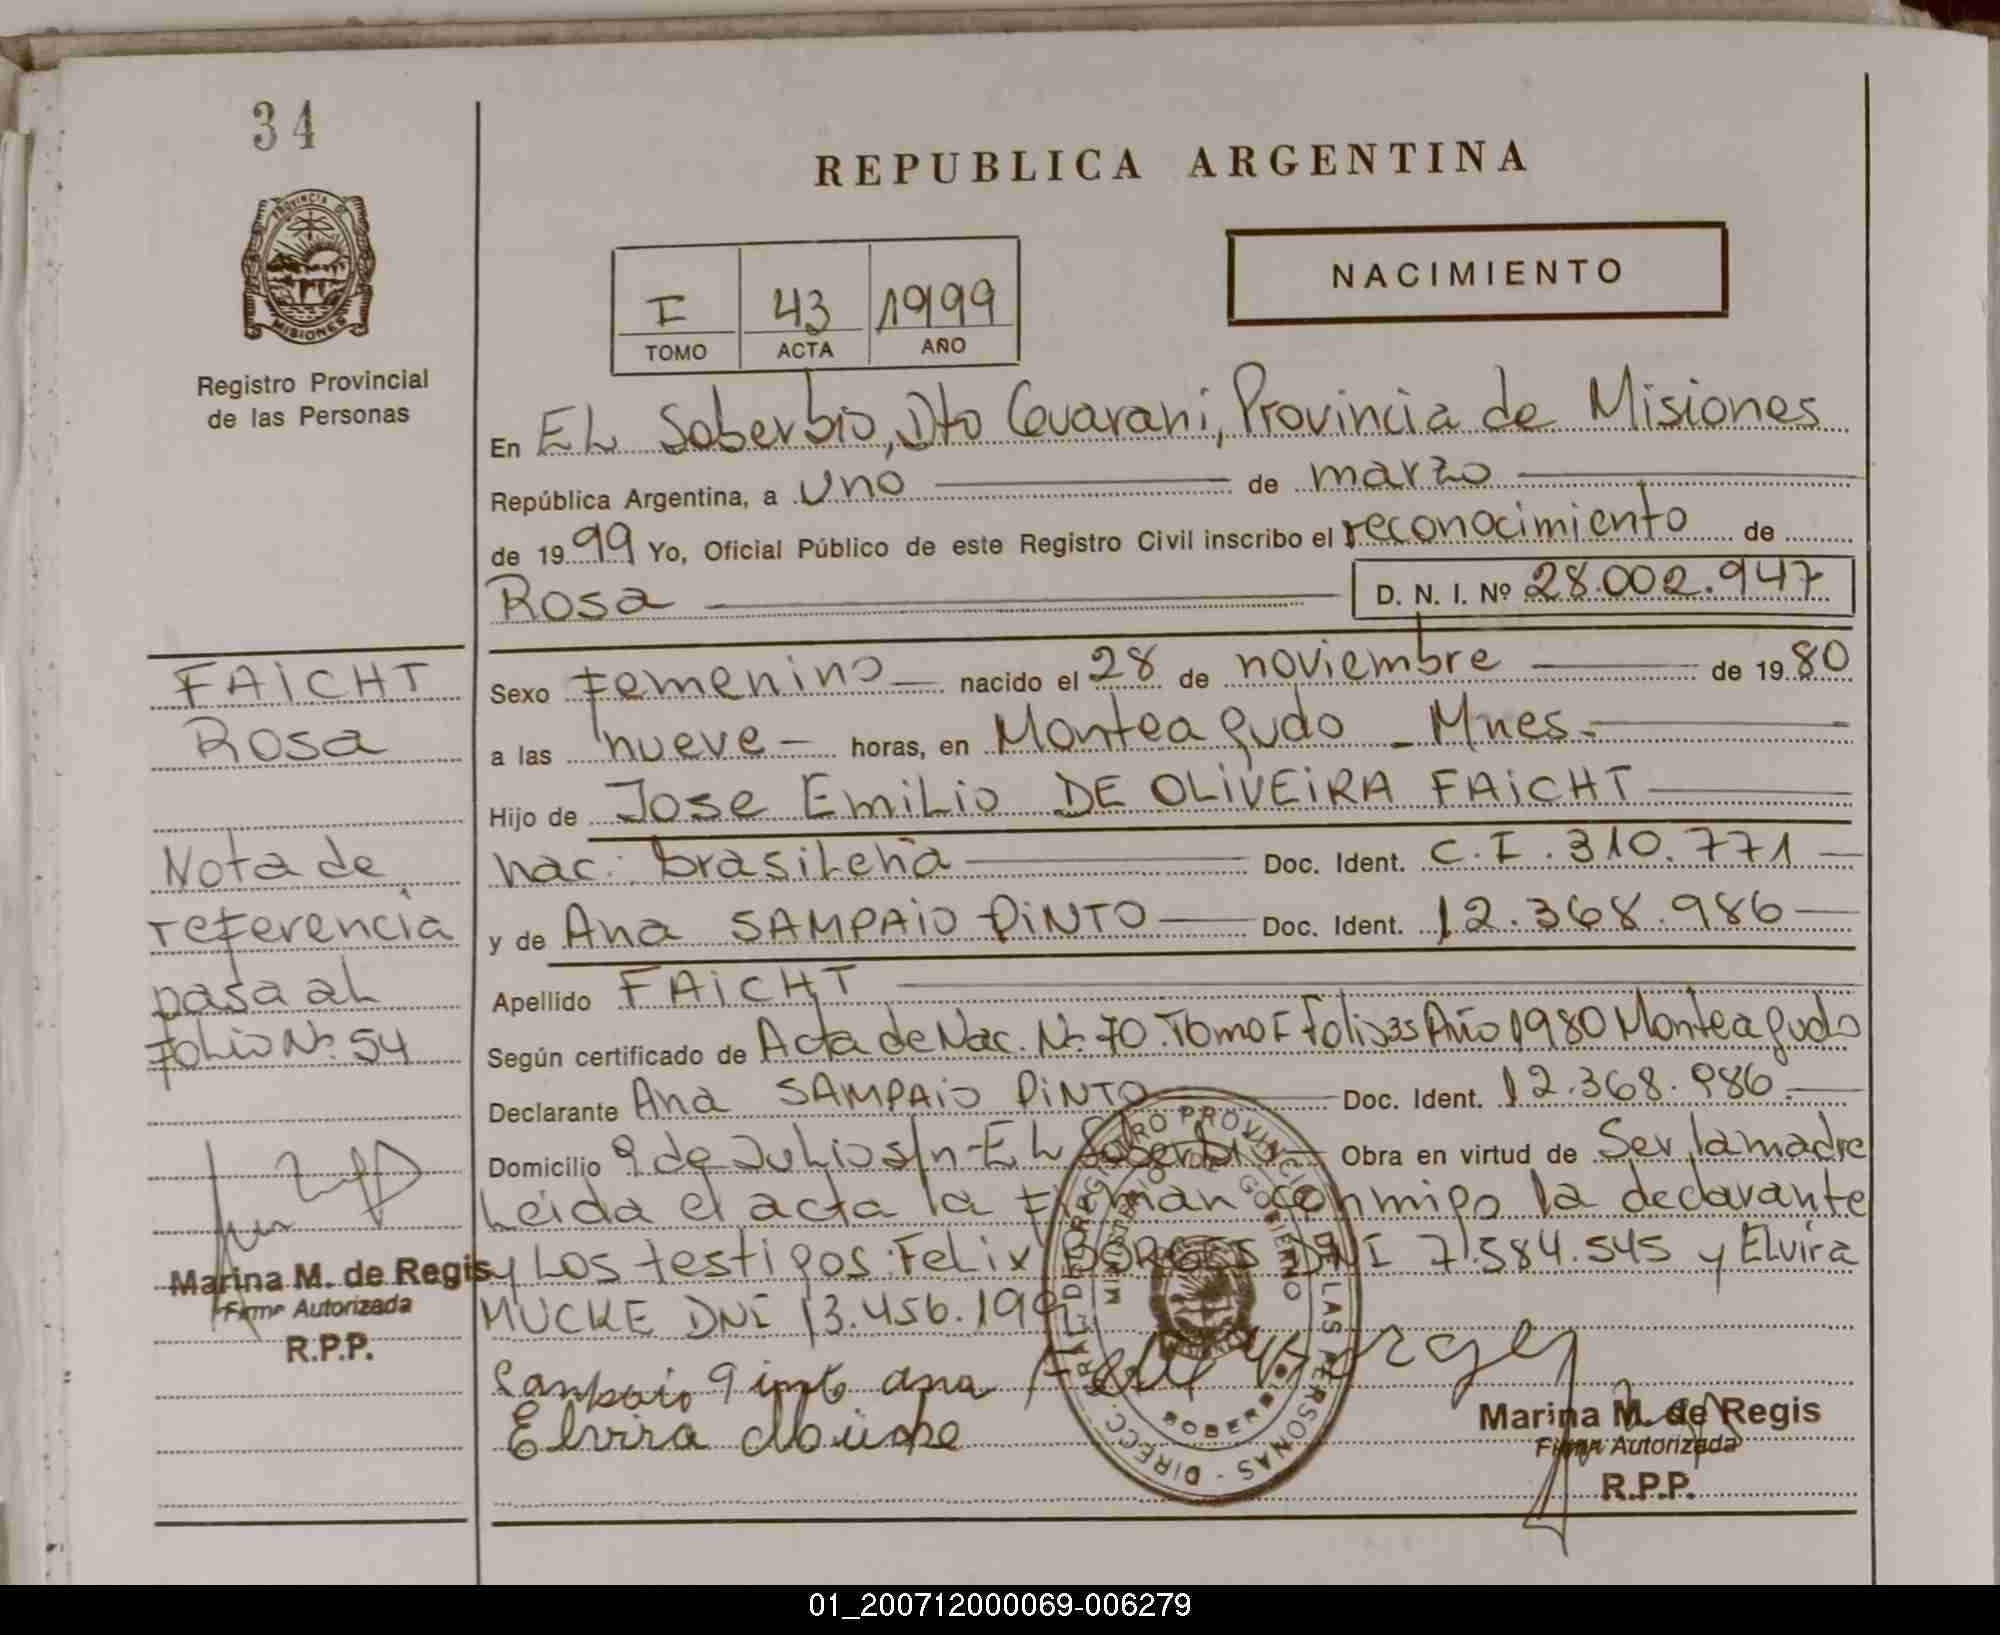 34
PROVINCIA DE
MISIONES
Registro Provincial
de las Personas
REPUBLICA ARGENTINA
NACIMIENTO
I 43 1999
TOMO ACTA AÑO
En EL Soberbio, Dto Guarani, Provincia de Misiones
República Argentina, a uno de marzo
de 1999 Yo, Oficial Público de este Registro Civil inscribo el reconocimiento de
Rosa D. N. I. Nº 28.002.947
Sexo femenino nacido el 28 de noviembre de 1980
a las nueve horas, en Monteagudo - Mnes.
Hijo de Jose Emilio DE OLIVEIRA FAICHT
nac: brasileña Doc. Ident. C.I. 310.771
y de Ana SAMPAIO PINTO Doc. Ident. 12.368.986
Apellido FAICHT
Según certificado de Acta de Nac. Nº 70. Tomo I Folio 35 Año 1980 Monteagudo
Declarante Ana SAMPAIO PINTO Doc. Ident. 12.368.986
Domicilio 9 de Julio s/n - EL Soberbio Obra en virtud de Ser la madre
Leida el acta la firman conmigo la declarante
y Los testigos: Felix BORGES DNI 7.584.545 y Elvira
MUCKE DNI 13.456.199
Sampaio Pinto ana Felix Borges
Elvira Mücke
Marina M. de Regis
Firma Autorizada
R.P.P.
FAICHT
Rosa
Nota de
referencia
pasa al
folio Nº 54
Marina M. de Regis
Firma Autorizada
R.P.P.
DIRECC. GRAL. DEL REGISTRO PROVINCIAL DE LAS PERSONAS
MINISTERIO DE GOBIERNO
SOBERBIO
01_200712000069-006279